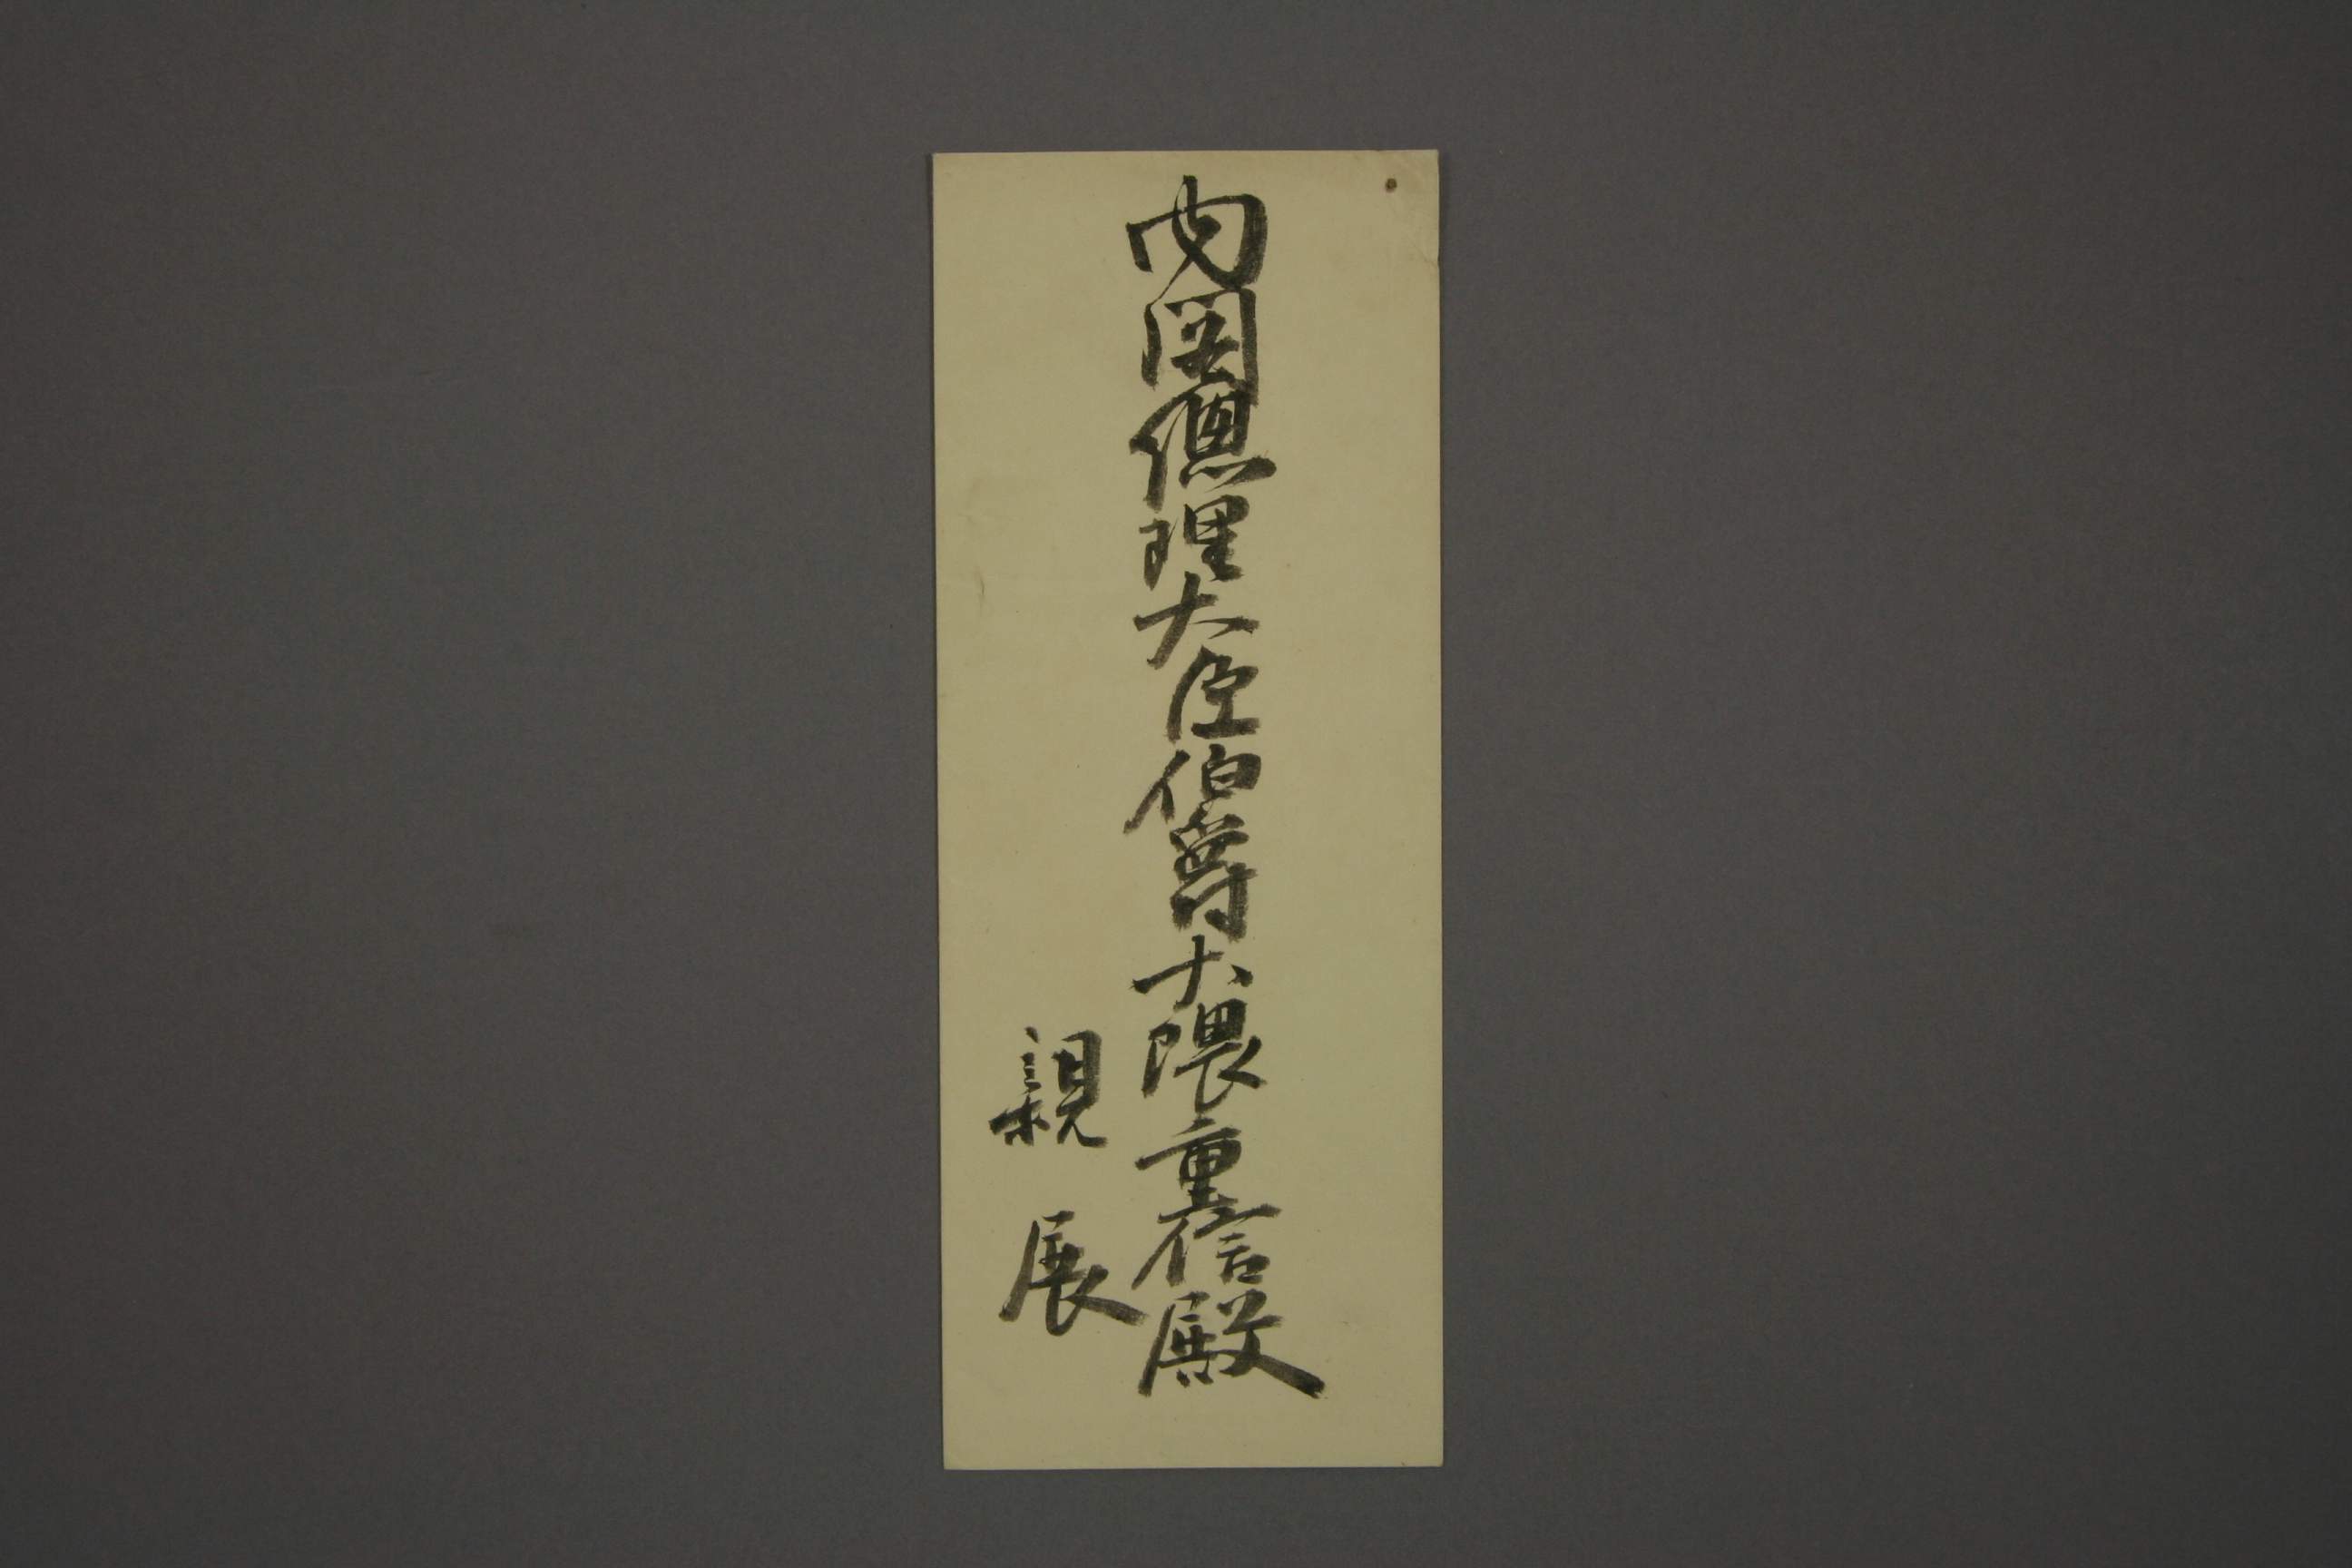 内閣総理大臣伯爵大隈重信殿
親展